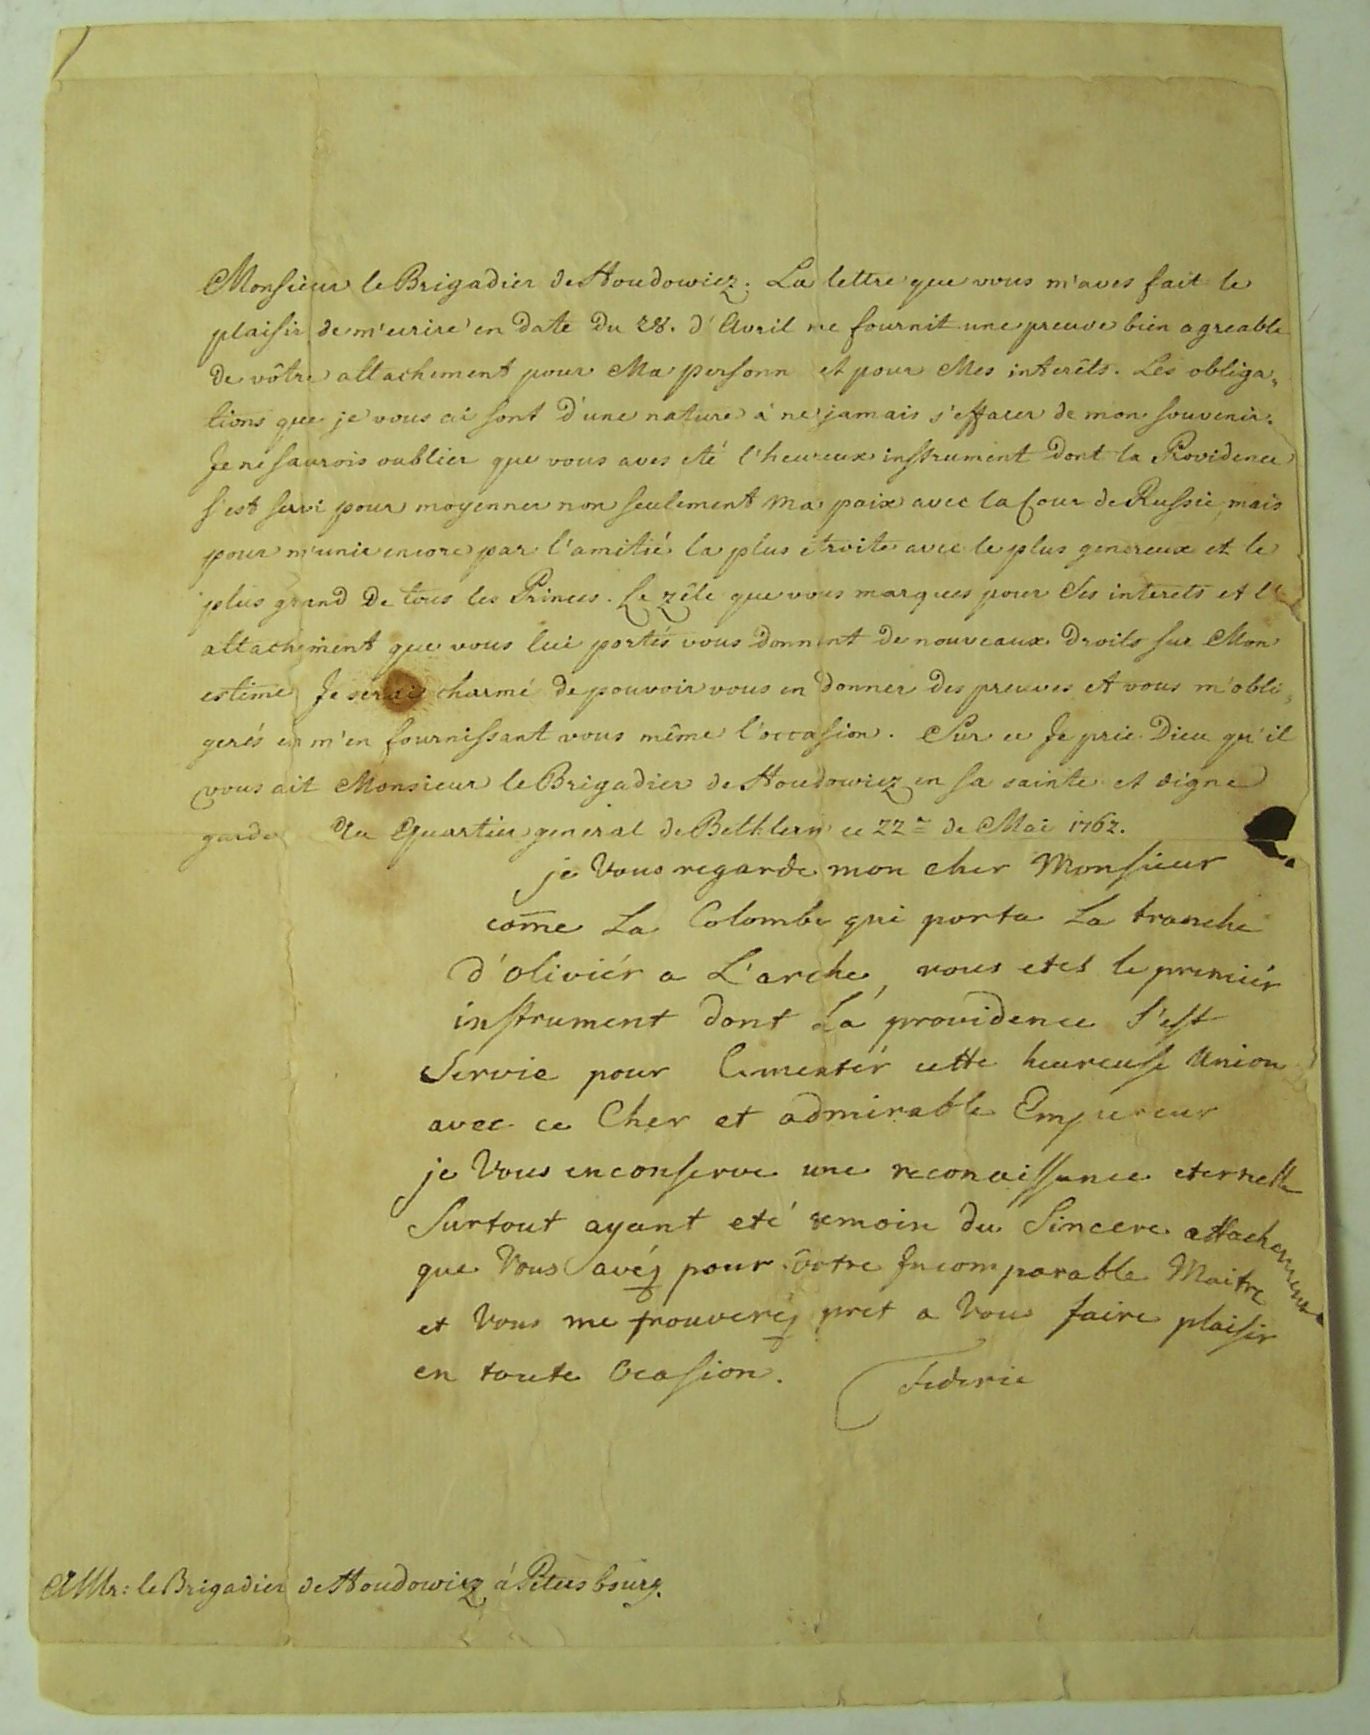 Monsieur le Brigadier de Houdowiez. La lettre que vous m'aves fait le
plaisir de m'ecrire en date du 28. d'Avril me fournit une preuve bien agreable
de vôtre attachement pour Ma personn et pour Mes interêts. Les obliga-
tions que je vous ai sont d'une nature à ne jamais s'effacer de mon souvenir.
Je ne saurois oublier que vous aves eté l'heureux instrument dont la Providence
s'est servi pour moyenner non seulement ma paix avec la Cour de Russie, mais
pour m'unir encore par l'amitié la plus etroite avec le plus genereux et le
plus grand de tous les Princes. Le zêle que vous marques pour Ses interets et l'
attachement que vous lui portés vous donnent de nouveaux droits sur Mon
estime. Je serais charmé de pouvoir vous en donner des preuves et vous m'obli-
gerés en m'en fournissant vous même l'occasion. Sur ce Je prie Dieu qu'il
vous ait Monsieur le Brigadier de Houdowiez en sa sainte et digne
garde. Au Quartier general de Bethlern ce 22e de Mai 1762.
je Vous regarde mon cher Monsieur
com̄e La Colombe qui porta La branche
d'oliviér a L'arche, vous etes le premiér
instrument dont La providence s'est
Servie pour Cimentér cette heureuse Union
avec ce Cher et admirable Empereur
je Vous en conserve une reconaissance eternelle
Surtout ayant eté temoin du Sincere attachement
que Vous avéz pour votre Incomparable Maitre
et Vous me trouveréz pret a Vous faire plaisir
en toute Ocasion. Federic
A Mr: le Brigadier de Houdowiez à Petersbourg.